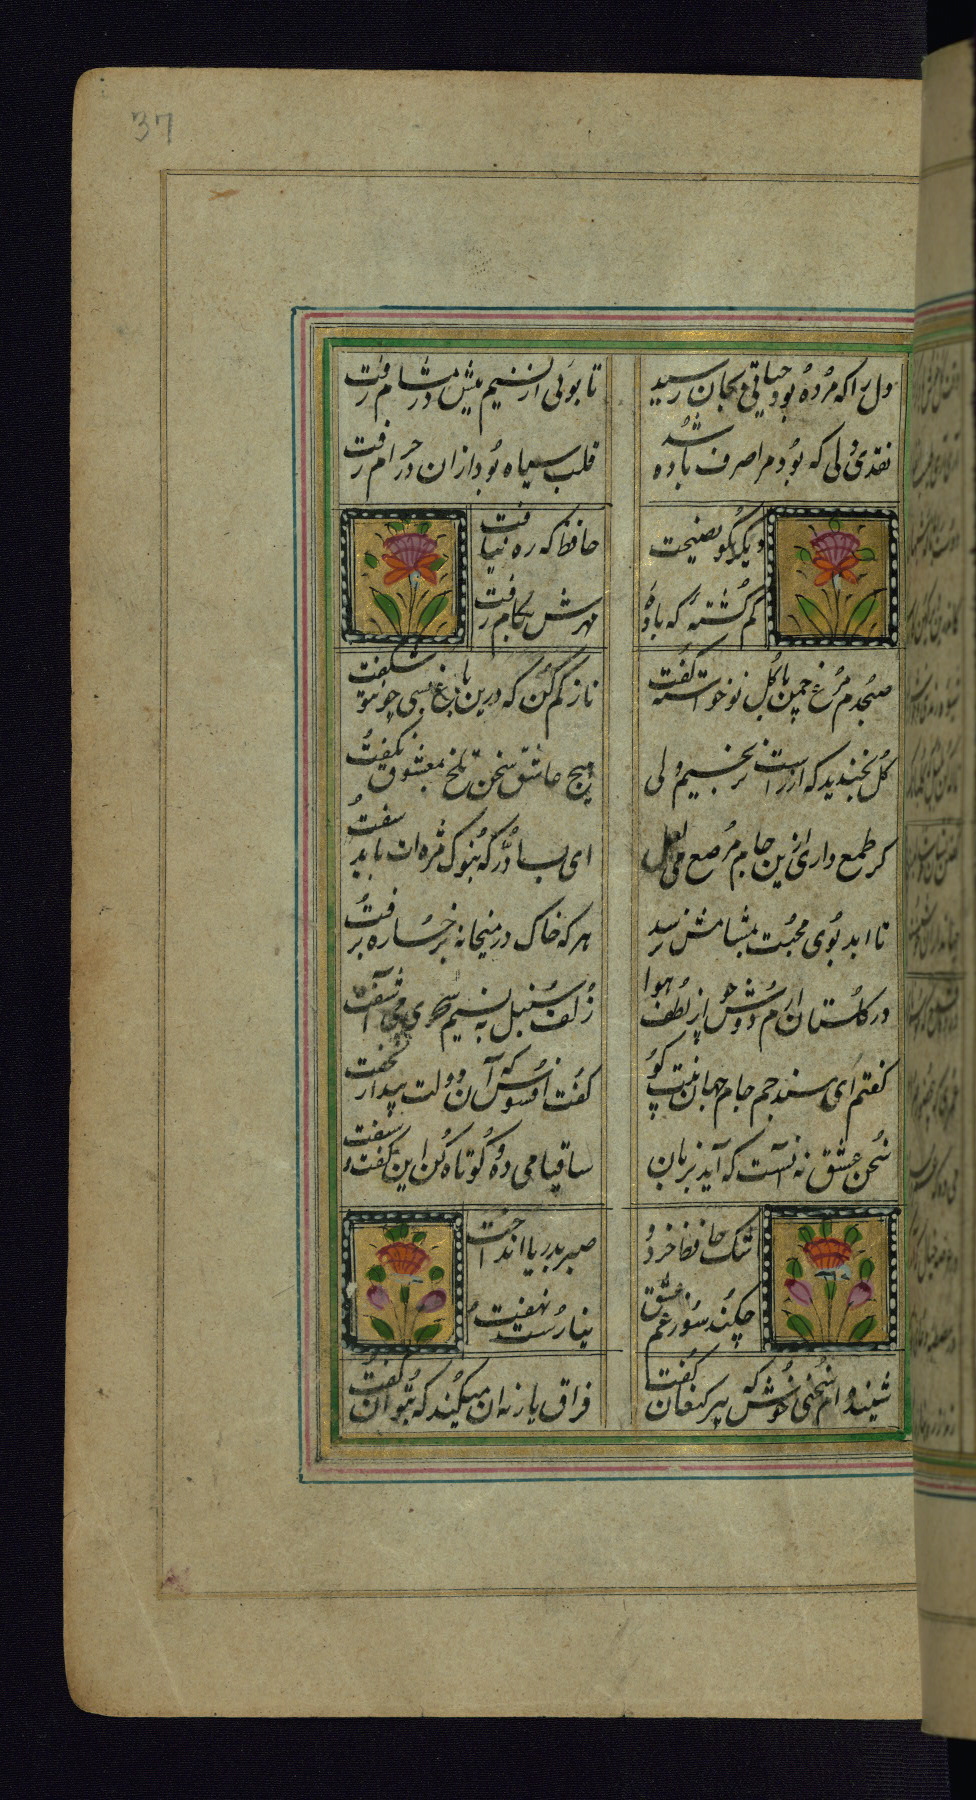 37
دل را که مرده بود حیاتی بجان رسید
تا بوئی از نسیم میش در مشام رفت
نقدی دلی که بود مرا صرف باده شد
قلب سیاه بود ازان در حرام رفت
دیگر مگو نصیحت
حافظ که ره نیافت
گم گشته که باده
مهرش بکام رفت
صبحدم مرغ چمن با گل نوخواسته گفت
ناز کم کن که درین باغ بسی چو تو شگفت
گل بخندید که از راست نرنجیم ولی
هیچ عاشق سخن تلخ بمعشوق نگفت
گر طمع داری ازین جام مرصع می لعل
ای بسا در که بنوک مژه ات باید سفت
تا ابد بوی محبت بمشامش نرسد
هر که خاک در میخانه برخساره برفت
در گلستان ارم دوش چو از لطف هوا
زلف سنبل به نسیم سحری می آشفت
گفتم ای مسند جم جام جهان بینت کو
گفت افسوس که آن دولت بیدار بخفت
سخن عشق نه آنست که آید بزبان
ساقیا می ده و کوتاه کن این گفت و شنفت
اشک حافظ خرد و
صبر بدریا انداخت
چکند سوز غم عشق
نیارست نهفت
شنیده ام سخنی خوش که پیر کنعان گفت
فراق یار نه ان میکند که بتوان گفت